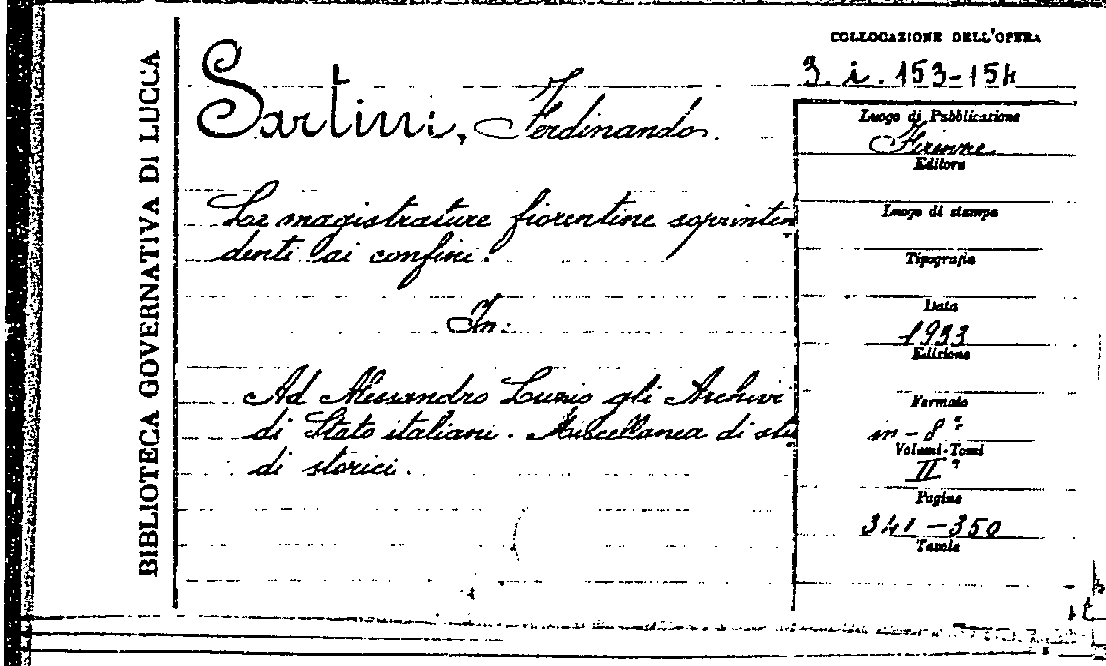 BIBLIOTECA GOVERNATIVA DI LUCCA
Sartini, Ferdinando.
Le magistrature fiorentine soprinten
denti ai confini.
In:
Ad Alessandro Luzio gli Archivi
di Stato italiani. Miscellanea di stu
di storici.
COLLOCAZIONE DELL'OPERA
3. i. 153-154
Luogo di Pubblicazione
Firenze
Editore
Luogo di stampa
Tipografia
Data
1933
Edizione
Formato
in-8°
Volumi-Tomi
II°
Pagine
341-350
Tavole